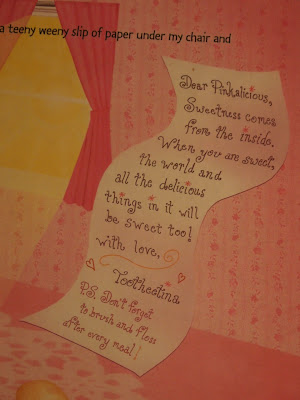 a teeny weeny slip of paper under my chair and
Dear Pinkalicious,
Sweetness comes
from the inside.
When you are sweet,
the world and
all the delicious
things in it will
be sweet too!
with love,
Toothetina
P.S. Don't forget
to brush and floss
after every meal!